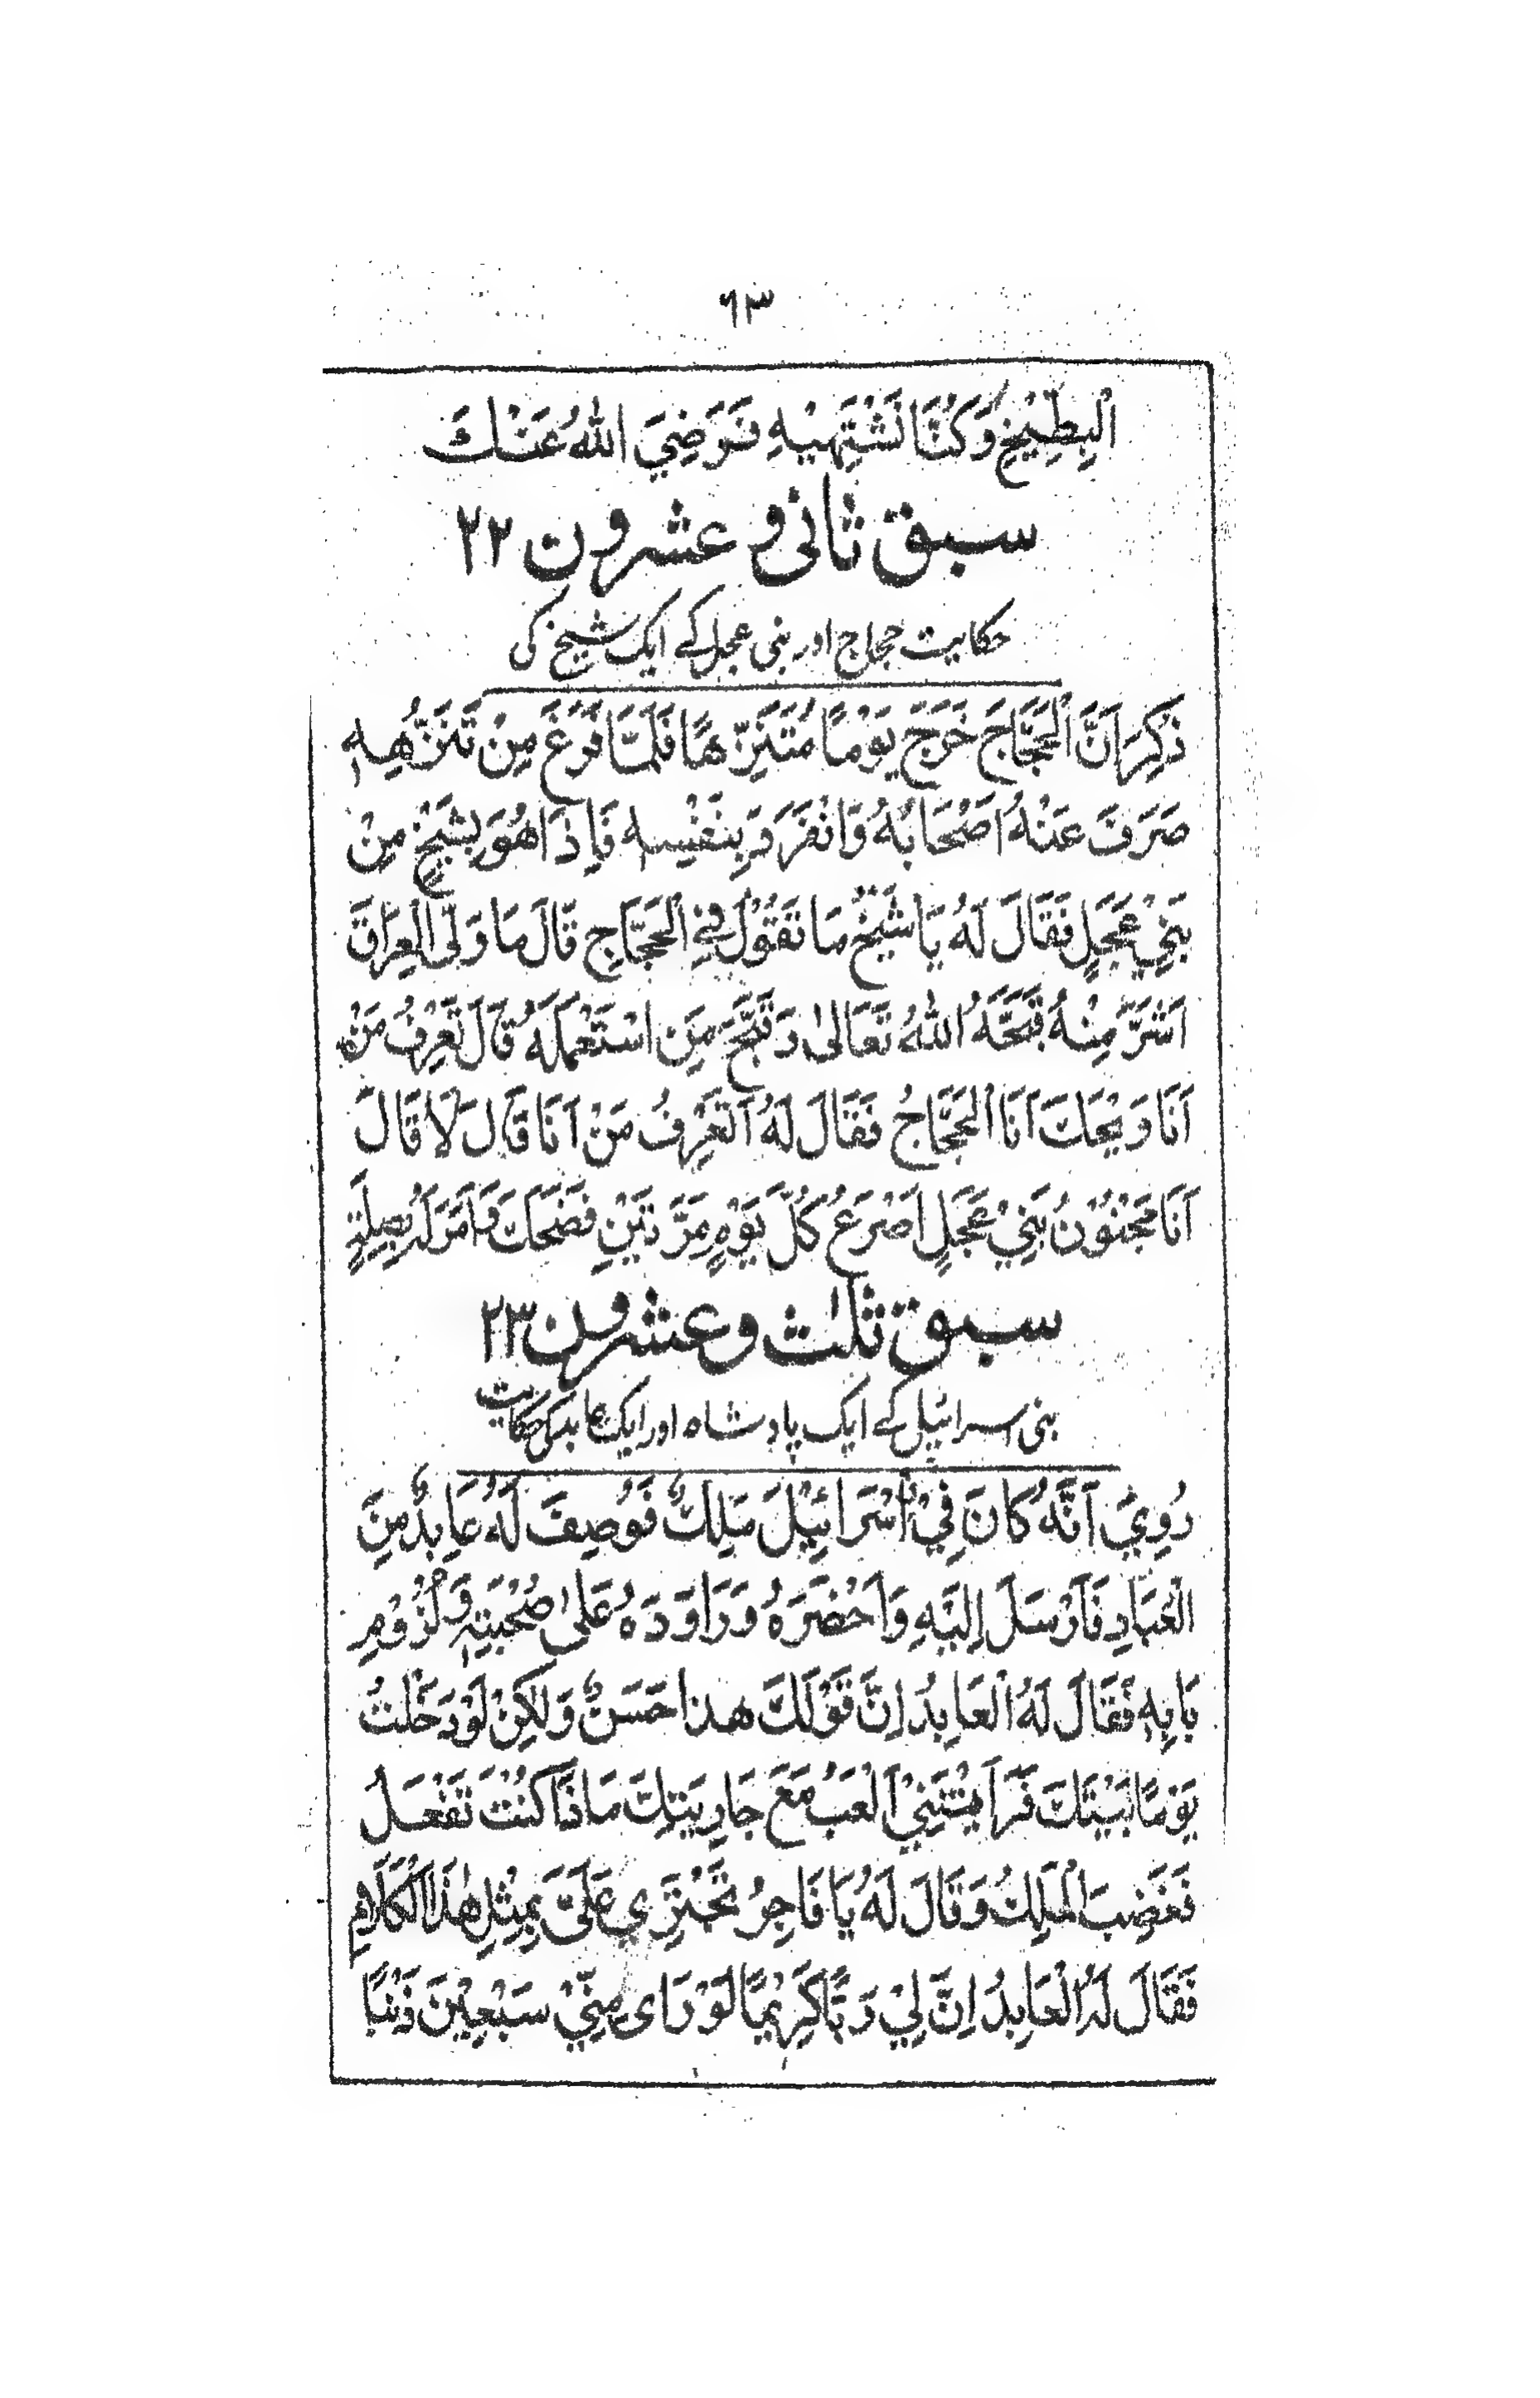 ٦٣
الْبِطِّيْخِ وَكُنَّا نَشْتَهِيْهِ فَرَضِيَ اللهُ عَنْكَ
سبق ثانی و عشرون ٢٢
حکایت حجاج اور بنی عجل کے ایک شیخ کی
ذُكِرَ اَنَّ الْحَجَّاجَ خَرَجَ يَوْمًا مُتَنَزِّهًا فَلَمَّا فَرَغَ مِنْ تَنَزُّهِهٖ
صَرَفَ عَنْهُ اَصْحَابَهُ وَانْفَرَدَ بِنَفْسِهٖ فَاِذَا هُوَ بِشَيْخٍ مِنْ
بَنِيْ عَجَلٍ فَقَالَ لَهُ يَا شَيْخُ مَا تَقُوْلُ فِي الْحَجَّاجِ قَالَ مَا وَلَّى الْعِرَاقَ
اَشَرَّ مِنْهُ قَبَّحَهُ اللهُ تَعَالٰى وَقَبَّحَ مَنِ اسْتَعْمَلَهُ قَالَ تَعْرِفُ مَنْ
اَنَا وَيْحَكَ اَنَا الْحَجَّاجُ فَقَالَ لَهُ اَتَعْرِفُ مَنْ اَنَا قَالَ لَا قَالَ
اَنَا مَجْنُوْنُ بَنِيْ عَجَلٍ اُصْرَعُ كُلَّ يَوْمٍ مَرَّتَيْنِ فَضَحَكَ وَاَمَرَ لَهُ بِصِلَةٍ
سبق ثلث و عشرون ٢٣
بنی اسرائیل کے ایک پادشاہ اور ایک عابد کی حکایت
رُوِيَ اَنَّهُ كَانَ فِيْ اِسْرَائِيْلَ مَلِكٌ فَوُصِفَ لَهُ عَابِدٌ مِنَ
الْعُبَّادِ فَاَرْسَلَ اِلَيْهِ وَاَحْضَرَهُ وَرَاوَدَهُ عَلٰى صُحْبَتِهٖ وَلُزُوْمِ
بَابِهٖ فَقَالَ لَهُ الْعَابِدُ اِنَّ قَوْلَكَ هذا حَسَنٌ وَلٰكِنْ لَوْ دَخَلْتَ
يَوْمًا بَيْتَكَ فَرَاَيْتَنِيْ اَلْعَبُ مَعَ جَارِيَتِكَ مَاذَا كُنْتَ تَفْعَلُ
فَغَضِبَ الْمَلِكُ وَقَالَ لَهُ يَا فَاجِرُ تَجْتَرِي عَلَيَّ بِمِثْلِ هٰذَا الْكَلَامِ
فَقَالَ لَهُ الْعَابِدُ اِنَّ لِيْ رَبًّا كَرِيْمًا لَوْ رَاٰى مِنِّيْ سَبْعِيْنَ ذَنْبًا